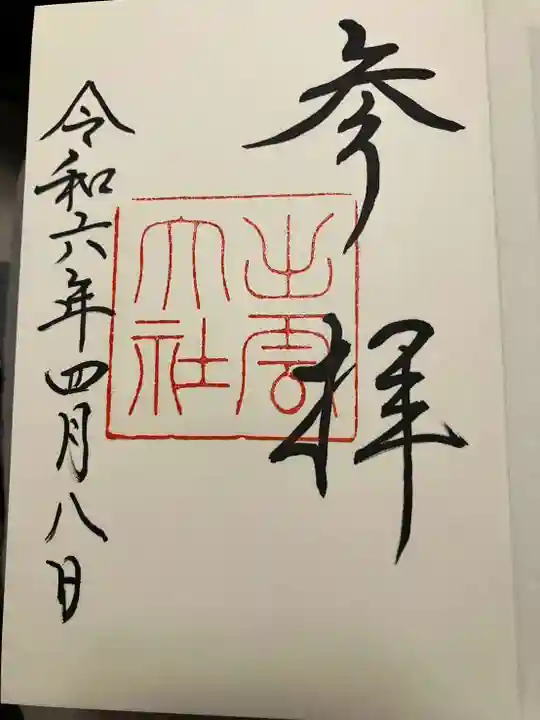 参拝
出雲
大社
令和六年四月八日